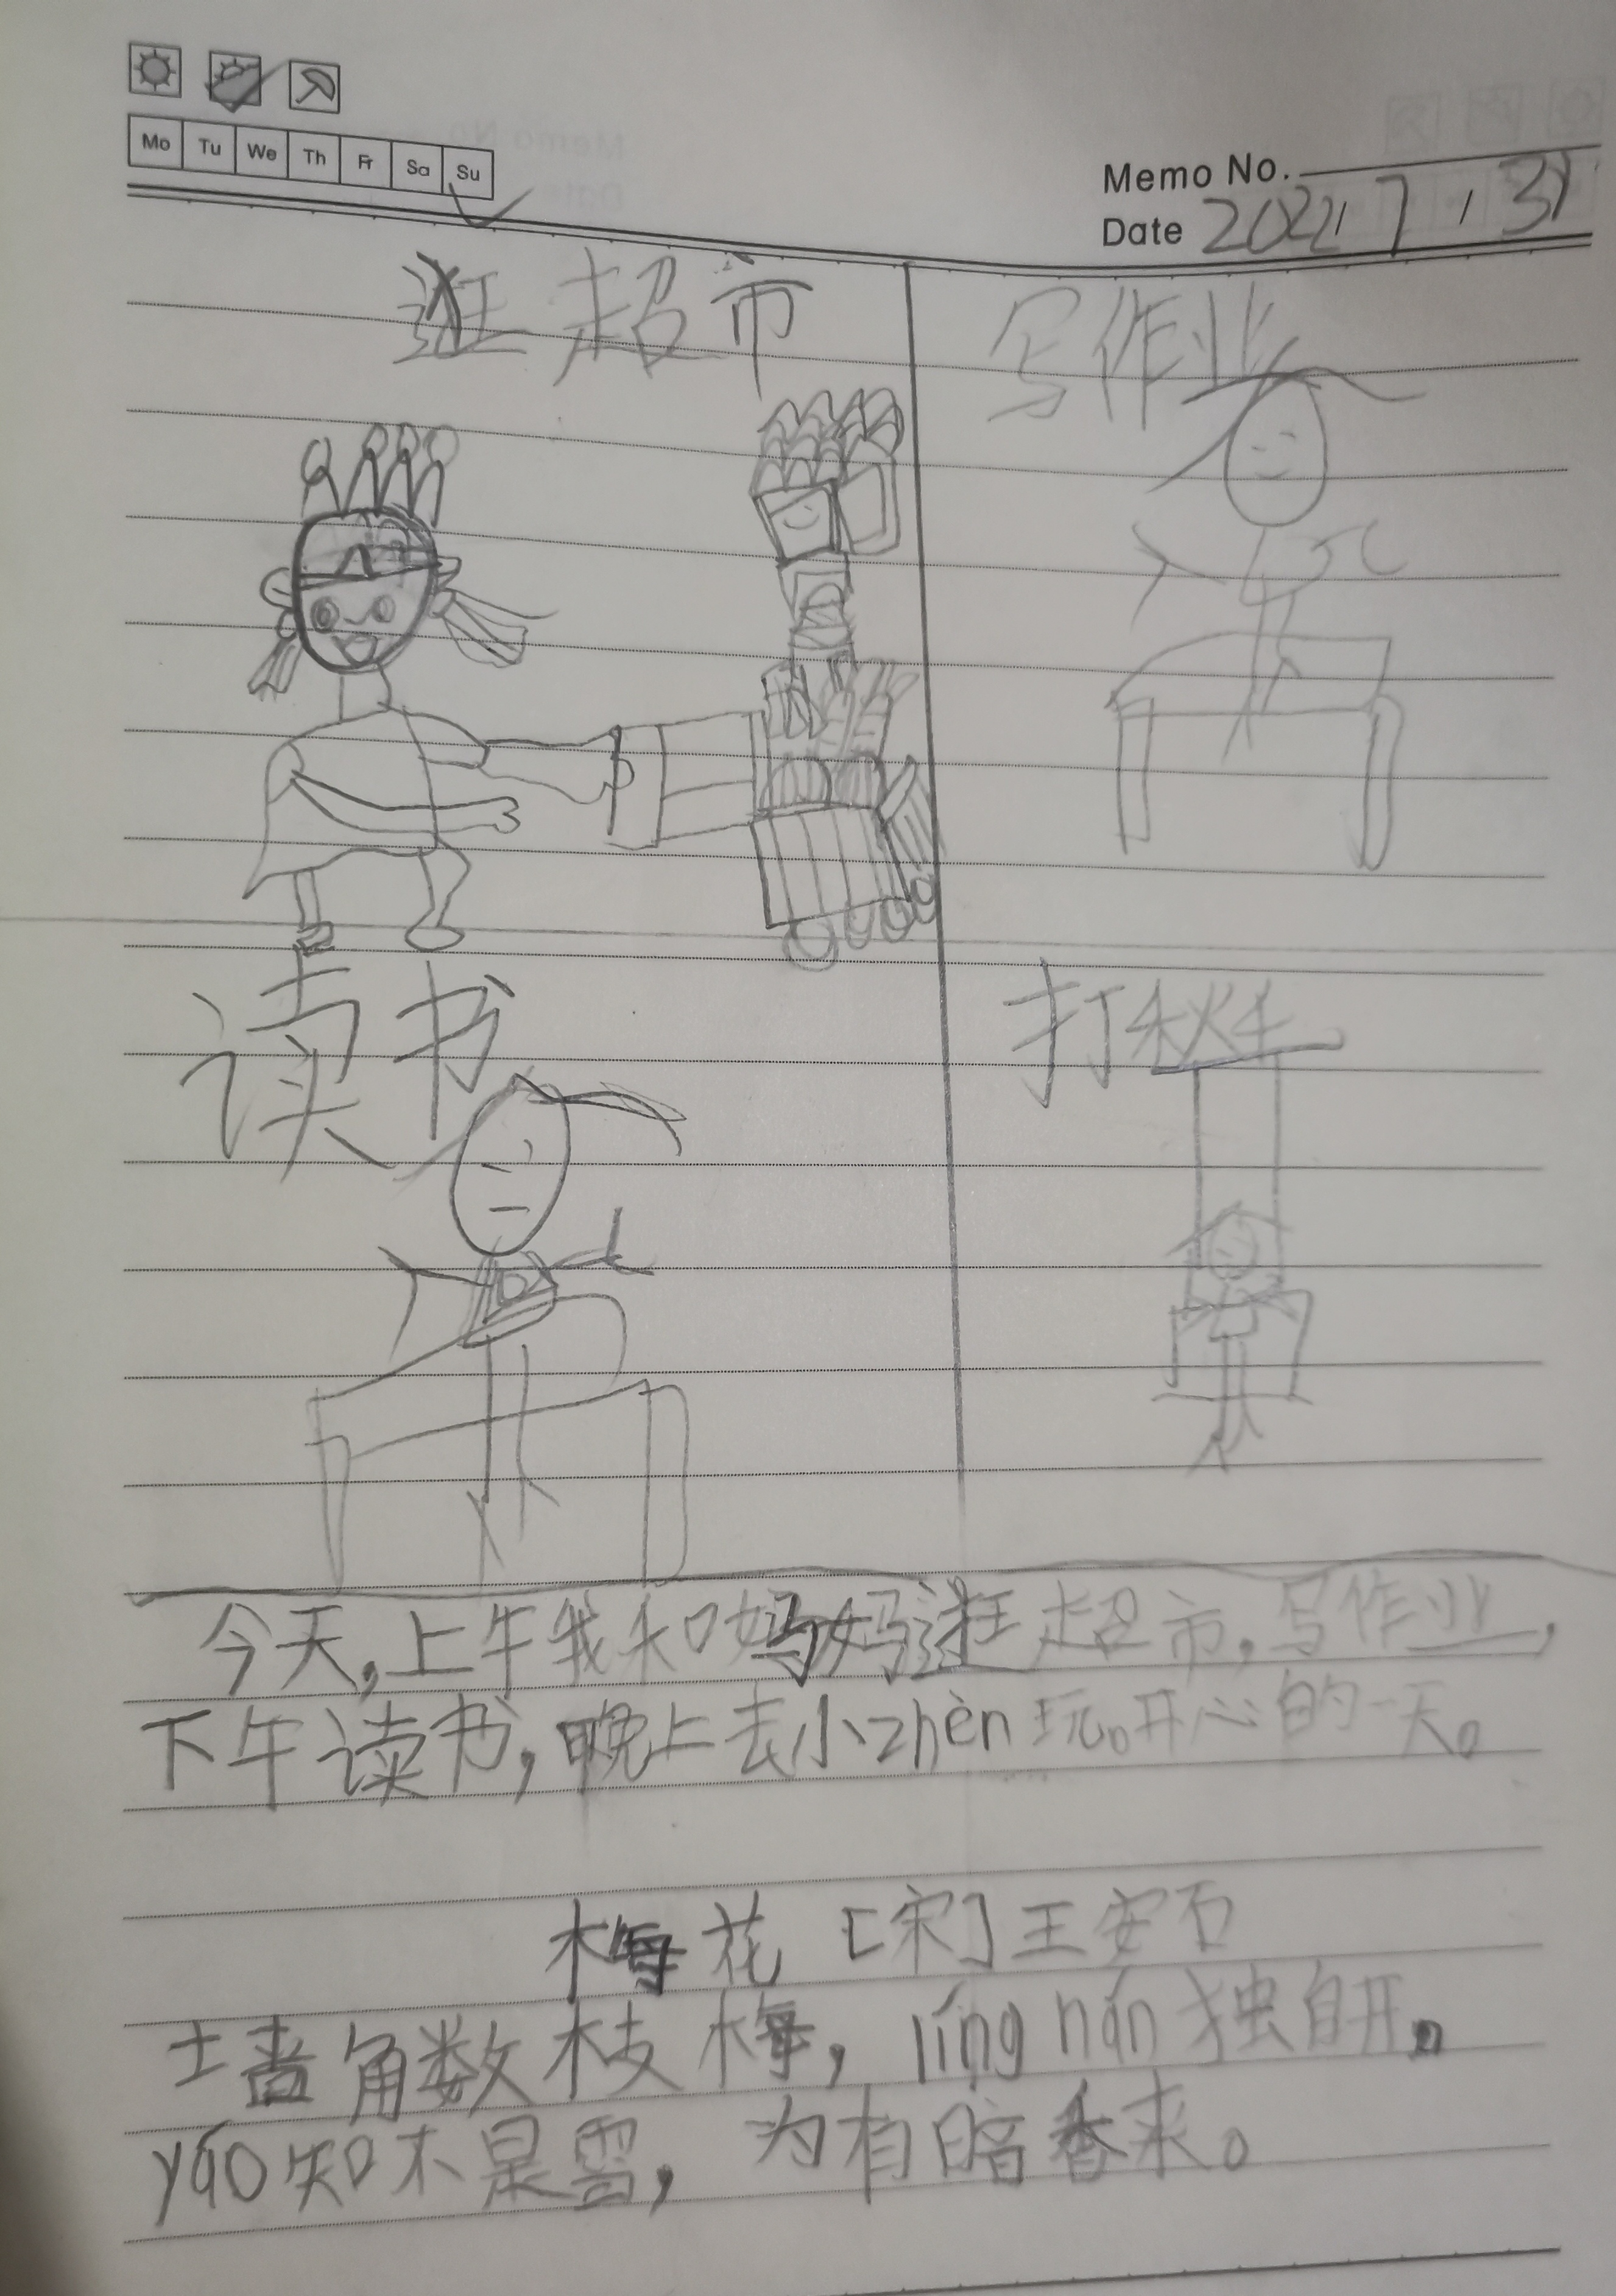 Mo Tu We Th Fr Sa Su
Memo No.
Date 2022.7.31
逛超市
写作业
读书
打秋千
今天,上午我和妈妈逛超市,写作业,
下午读书,晚上去小zhèn玩。开心的一天。
梅花 [宋]王安石
墙角数枝梅,líng hán独自开。
yáo知不是雪,为有暗香来。